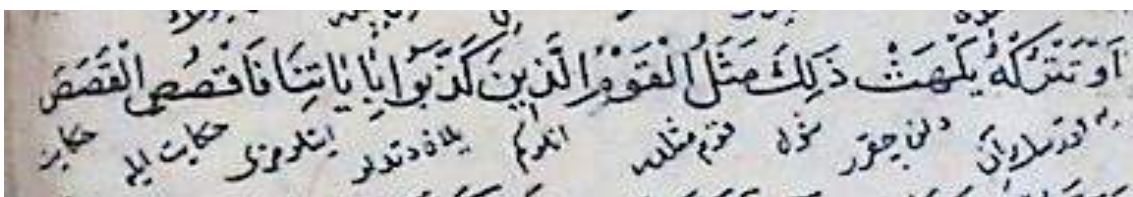 اَوْ تَتْرُكْهُ يَلْهَثْ ذٰلِكَ مَثَلُ الْقَوْمِ الَّذِينَ كَذَّبُوا بِاٰيَاتِنَا فَاقْصُصِ الْقَصَصَ
دلن چقرر شول قوم مثلدر انلركم يلان دتدلر ايتلرمزى حكايت ايله حكايت